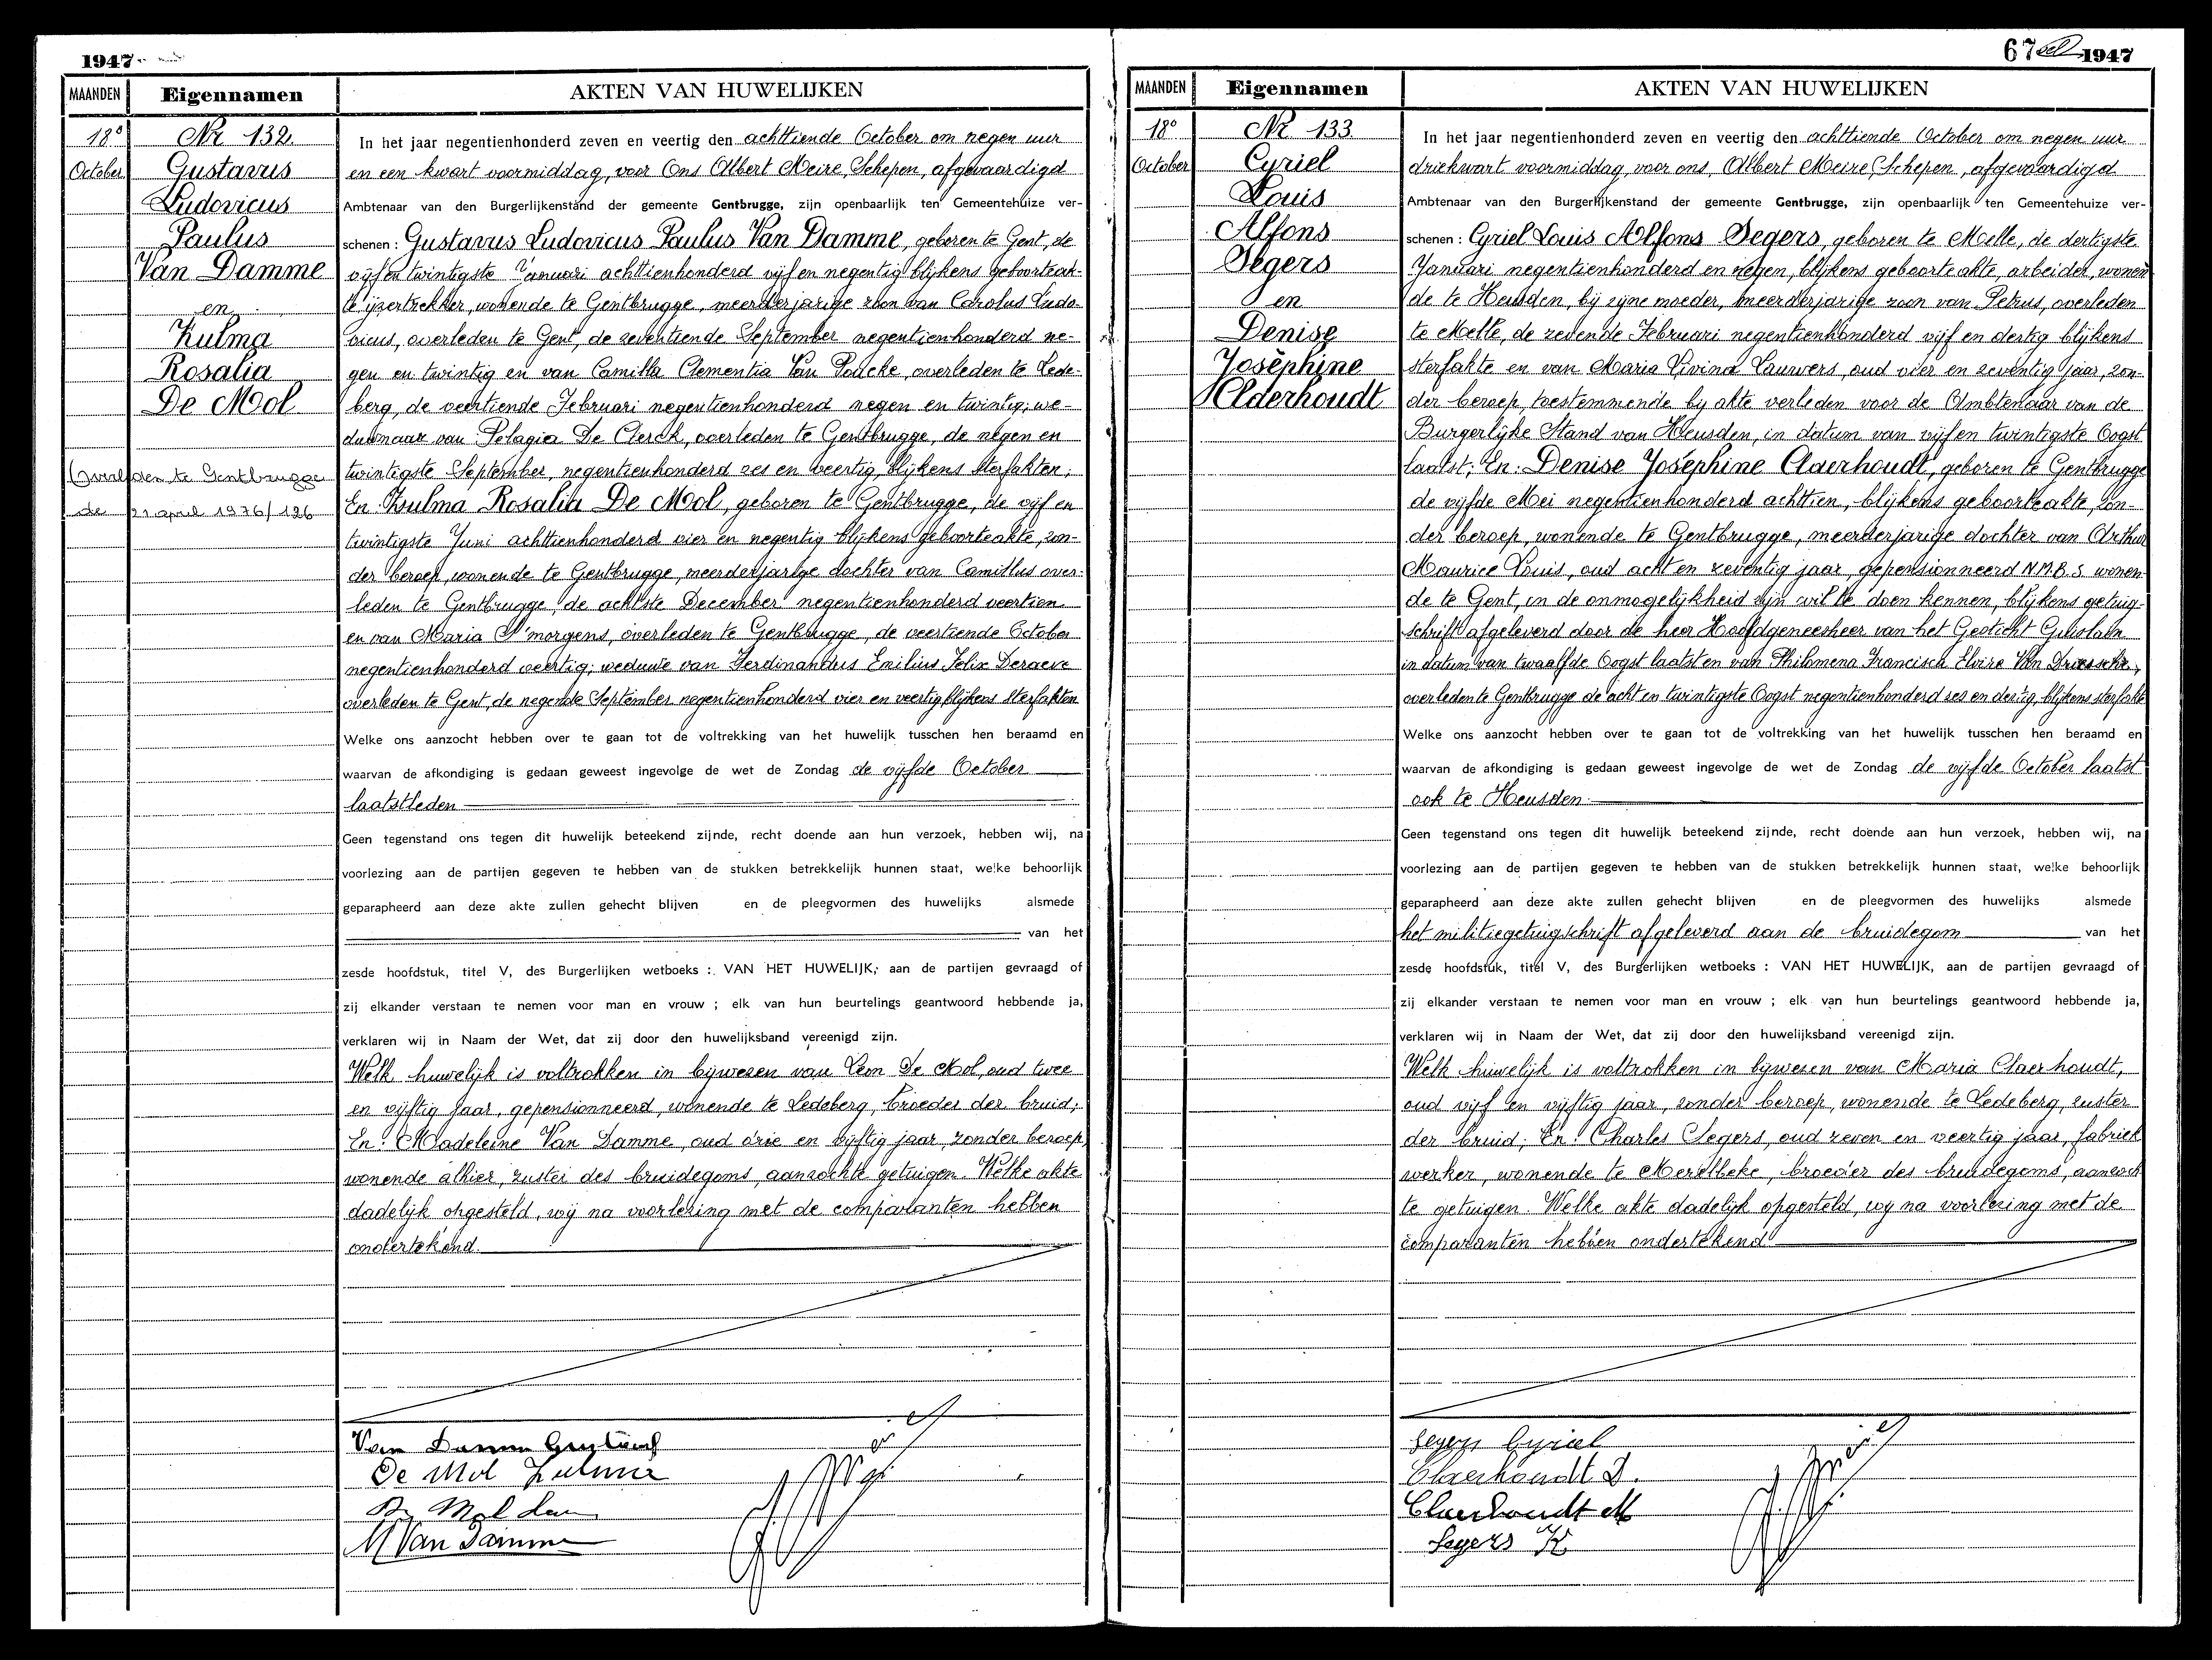 1947
MAANDEN
Eigennamen
AKTEN VAN HUWELIJKEN
18e
October
Nr 132
Gustavus
Ludovicus
Paulus
Van Damme
en
Zulma
Rosalia
De Mol
Overleden te Gentbrugge
de 21 april 1976/126
In het jaar negentienhonderd zeven en veertig den achttiende October om negen uur
en een kwart voormiddag, voor Ons Albert Meire, Schepen, afgevaardigd
Ambtenaar van den Burgerlijkenstand der gemeente Gentbrugge, zijn openbaarlijk ten Gemeentehuize ver-
schenen: Gustavus Ludovicus Paulus Van Damme, geboren te Gent, de
vijf en twintigste Januari achttienhonderd vijf en negentig blijkens geboorteak-
te ijzertrekker, wonende te Gentbrugge, meerderjarige zoon van Carolus Ludo-
vicus, overleden te Gent, de zeventiende September negentienhonderd ne-
gen en twintig en van Camilla Clementia Van Poucke, overleden te Lede-
berg, de veertiende Februari negentienhonderd negen en twintig; we-
duwnaar van Pelagia De Clerck, overleden te Gentbrugge, de negen en
twintigste September, negentienhonderd zes en veertig, blijkens sterfakten;
En: Zulma Rosalia De Mol, geboren te Gentbrugge, de vijf en
twintigste Juni achttienhonderd vier en negentig blijkens geboorteakte, zon-
der beroep, wonende te Gentbrugge, meerderjarige dochter van Camillus over-
leden te Gentbrugge, de achtste December negentienhonderd veertien
en van Maria S'morgens, overleden te Gentbrugge, de veertiende October
negentienhonderd veertig; weduwe van Ferdinandus Emilius Felix Deraeve
overleden te Gent, de negende September negentienhonderd vier en veertig blijkens sterfakten
Welke ons aanzocht hebben over te gaan tot de voltrekking van het huwelijk tusschen hen beraamd en
waarvan de afkondiging is gedaan geweest ingevolge de wet de Zondag de vijfde October
laatstleden
Geen tegenstand ons tegen dit huwelijk beteekend zijnde, recht doende aan hun verzoek, hebben wij, na
voorlezing aan de partijen gegeven te hebben van de stukken betrekkelijk hunnen staat, welke behoorlijk
geparapheerd aan deze akte zullen gehecht blijven en de pleegvormen des huwelijks alsmede
van het
zesde hoofdstuk, titel V, des Burgerlijken wetboeks : VAN HET HUWELIJK, aan de partijen gevraagd of
zij elkander verstaan te nemen voor man en vrouw ; elk van hun beurtelings geantwoord hebbende ja,
verklaren wij in Naam der Wet, dat zij door den huwelijksband vereenigd zijn.
Welk huwelijk is voltrokken in bijwezen van Leon De Mol, oud twee
en vijftig jaar, gepensionneerd, wonende te Ledeberg, broeder der bruid;
En: Madeleine Van Damme, oud drie en vijftig jaar, zonder beroep,
wonende alhier, zuster des bruidegoms, aanzochte getuigen. Welke akte
dadelijk opgesteld, wij na voorlezing met de comparanten hebben
ondertekend.
Van Damme Gustaaf
De Mol Zulma
De Mol Leon
M Van Damme
67 1947
MAANDEN
Eigennamen
AKTEN VAN HUWELIJKEN
18e
October
Nr 133
Cyriel
Louis
Alfons
Segers
en
Denise
Joséphine
Claerhoudt
In het jaar negentienhonderd zeven en veertig den achttiende October om negen uur
driekwart voormiddag, voor ons, Albert Meire, Schepen, afgevaardigd
Ambtenaar van den Burgerlijkenstand der gemeente Gentbrugge, zijn openbaarlijk ten Gemeentehuize ver-
schenen: Cyriel Louis Alfons Segers, geboren te Melle, de dertigste
Januari negentienhonderd en negen, blijkens geboorteakte, arbeider, wonen
de te Heusden, bij zijne moeder, meerderjarige zoon van Petrus, overleden
te Melle, de zevende Februari negentienhonderd vijf en dertig blijkens
sterfakte en van Maria Livina Lauwers, oud vier en zeventig jaar, zon-
der beroep, toestemmende bij akte verleden voor de Ambtenaar van de
Burgerlijke Stand van Heusden, in datum van vijf en twintigste Oogst
laatst; En: Denise Joséphine Claerhoudt, geboren te Gentbrugge
de vijfde Mei negentienhonderd achttien, blijkens geboorteakte, zon-
der beroep, wonende te Gentbrugge, meerderjarige dochter van Arthur
Maurice Louis, oud acht en zeventig jaar, gepensionneerd N.M.B.S. wonen-
de te Gent, in de onmogelijkheid zijn wil te doen kennen, blijkens getuig-
schrift afgeleverd door de heer Hoofdgeneesheer van het Gesticht Guislain
in datum van twaalfde Oogst laatst en van Philomena Francisca Elvira Van Driessche,
overleden te Gentbrugge de acht en twintigste Oogst negentienhonderd zes en dertig, blijkens sterfakte
Welke ons aanzocht hebben over te gaan tot de voltrekking van het huwelijk tusschen hen beraamd en
waarvan de afkondiging is gedaan geweest ingevolge de wet de Zondag de vijfde October laatst
ook te Heusden
Geen tegenstand ons tegen dit huwelijk beteekend zijnde, recht doende aan hun verzoek, hebben wij, na
voorlezing aan de partijen gegeven te hebben van de stukken betrekkelijk hunnen staat, welke behoorlijk
geparapheerd aan deze akte zullen gehecht blijven en de pleegvormen des huwelijks alsmede
het militiegetuigschrift afgeleverd aan de bruidegom van het
zesde hoofdstuk, titel V, des Burgerlijken wetboeks : VAN HET HUWELIJK, aan de partijen gevraagd of
zij elkander verstaan te nemen voor man en vrouw ; elk van hun beurtelings geantwoord hebbende ja,
verklaren wij in Naam der Wet, dat zij door den huwelijksband vereenigd zijn.
Welk huwelijk is voltrokken in bijwezen van Maria Claerhoudt,
oud vijf en vijftig jaar, zonder beroep, wonende te Ledeberg, zuster
der bruid; En: Charles Segers, oud zeven en veertig jaar, fabriek
werker, wonende te Merelbeke, broeder des bruidegoms, aanzoch
te getuigen. Welke akte dadelijk opgesteld, wij na voorlezing met de
comparanten hebben ondertekend.
Segers Cyriel
Claerhoudt D.
Claerhoudt M
Segers K